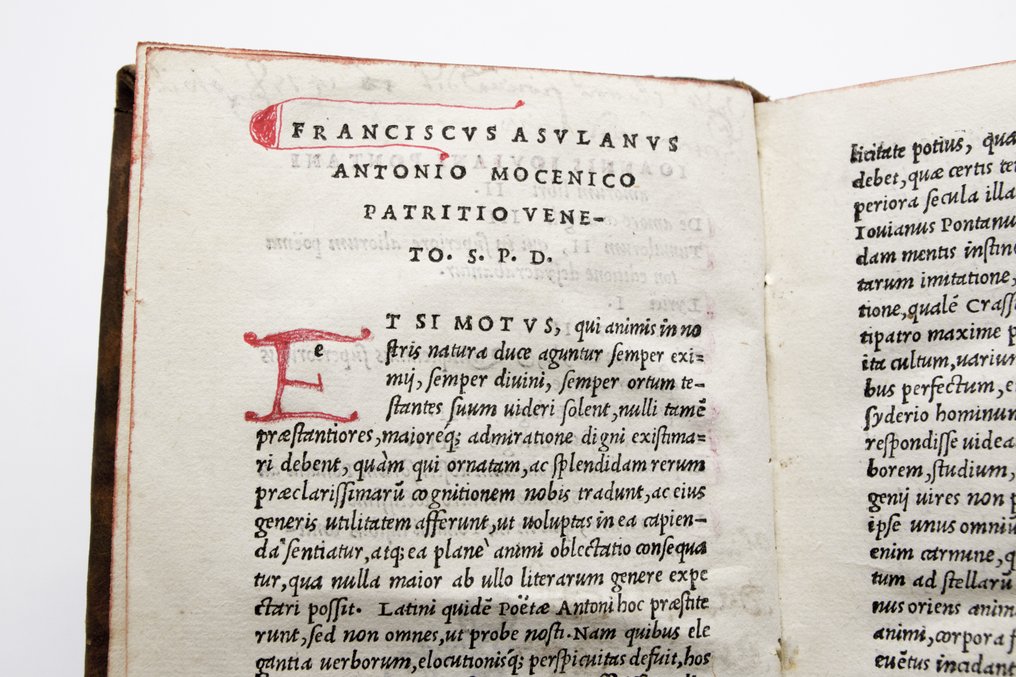 FRANCISCVS ASVLANVS
ANTONIO MOCENICO
PATRITIO VENE-
TO. S. P. D.
E e
T SI MOTVS, qui animis in no
ſtris natura duce aguntur ſemper exi=
mij, ſemper diuini, ſemper ortum te-
ſtantes ſuum uideri ſolent, nulli tamẽ
præſtantiores, maioreq́; admiratione digni exiſtima=
ri debent, quàm qui ornatam, ac ſplendidam rerum
præclariſſimarũ cognitionem nobis tradunt, ac eius
generis utilitatem afferunt, ut uoluptas in ea capien-
da ſentiatur, atq; ea planè animi oblectatio conſequa
tur, qua nulla maior ab ullo literarum genere expe
ctari poſſit. Latini quidẽ Poëtæ Antoni hoc præſtite
runt, ſed non omnes, ut probe noſti. Nam quibus ele
gantia uerborum, elocutionisq́; perſpicuitas defuit, hos
licitate potius, qua
debet, quæ certis te
periora ſecula illa
Iouianus Pontanu
dam mentis inſtin
tarum imitatione,
tione, qualẽ Craſſ
tipatro maxime p
ita cultum, uarium
bus perfectum, e
ſyderio hominum
reſpondiſſe uidea
borem, ſtudium,
genij uires non p
ipſe unus omniũ
enim carmine, q
tum ad ſtellarũ
nus oriens anim
animi, corpora f
euẽtus incidant